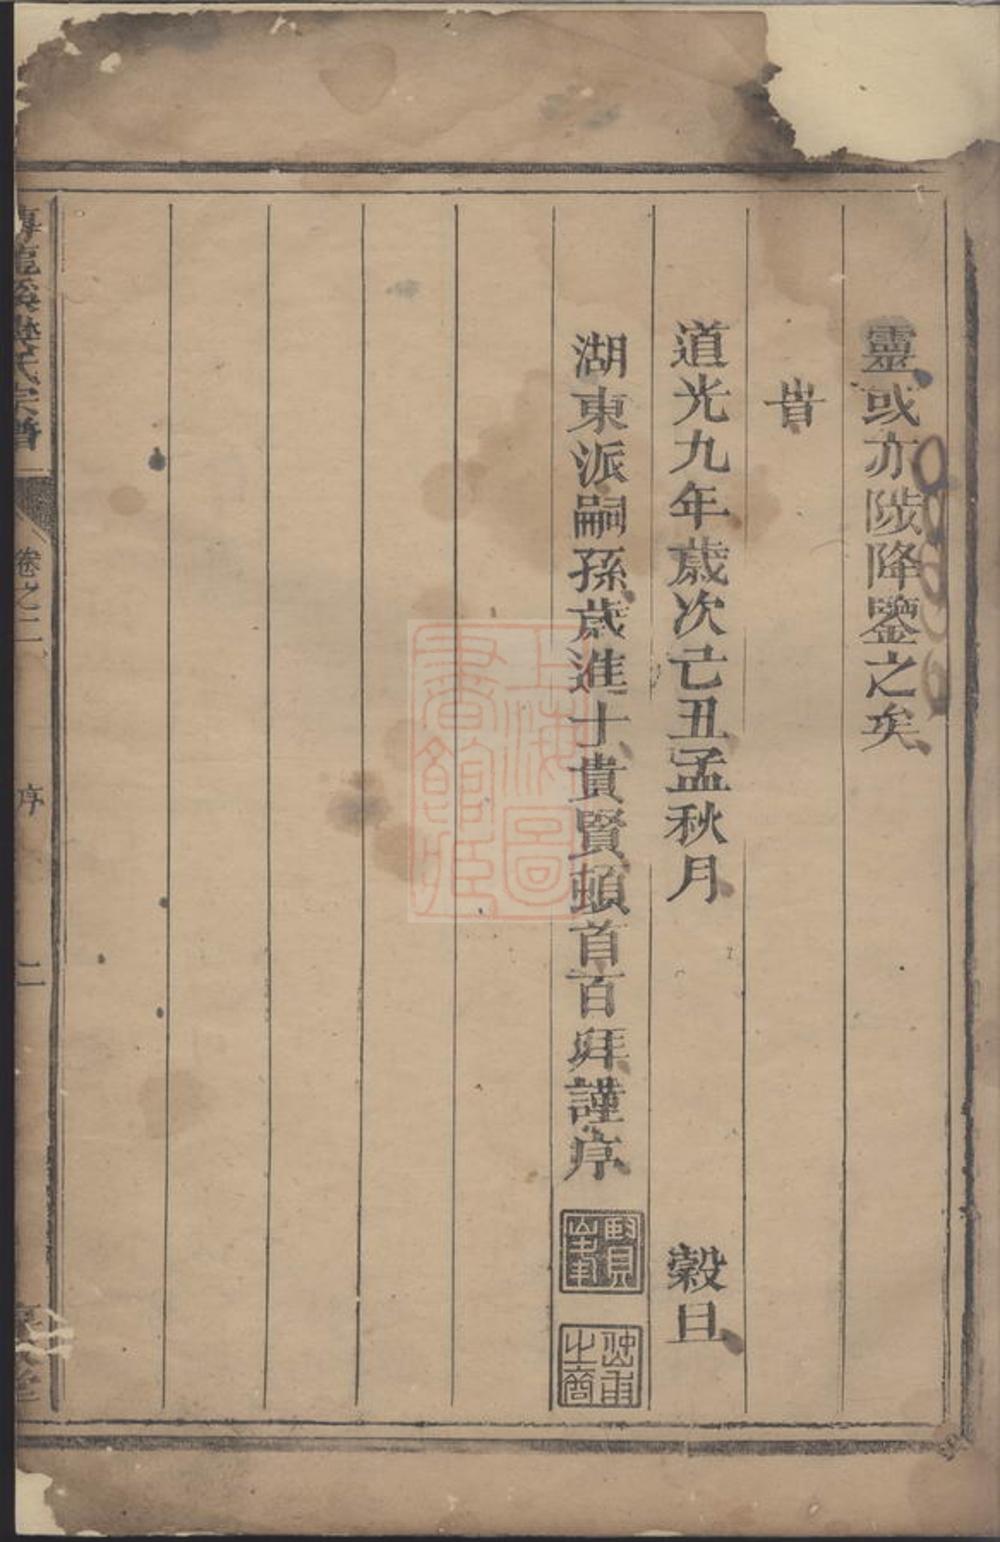 靈或亦陟降鑒之矣
旹
道光九年歲次己丑孟秋月 穀旦
湖東派嗣孫歲進士貴賢頓首百拜謹序
氏宗譜
卷之二
序
二
上海圖書館藏